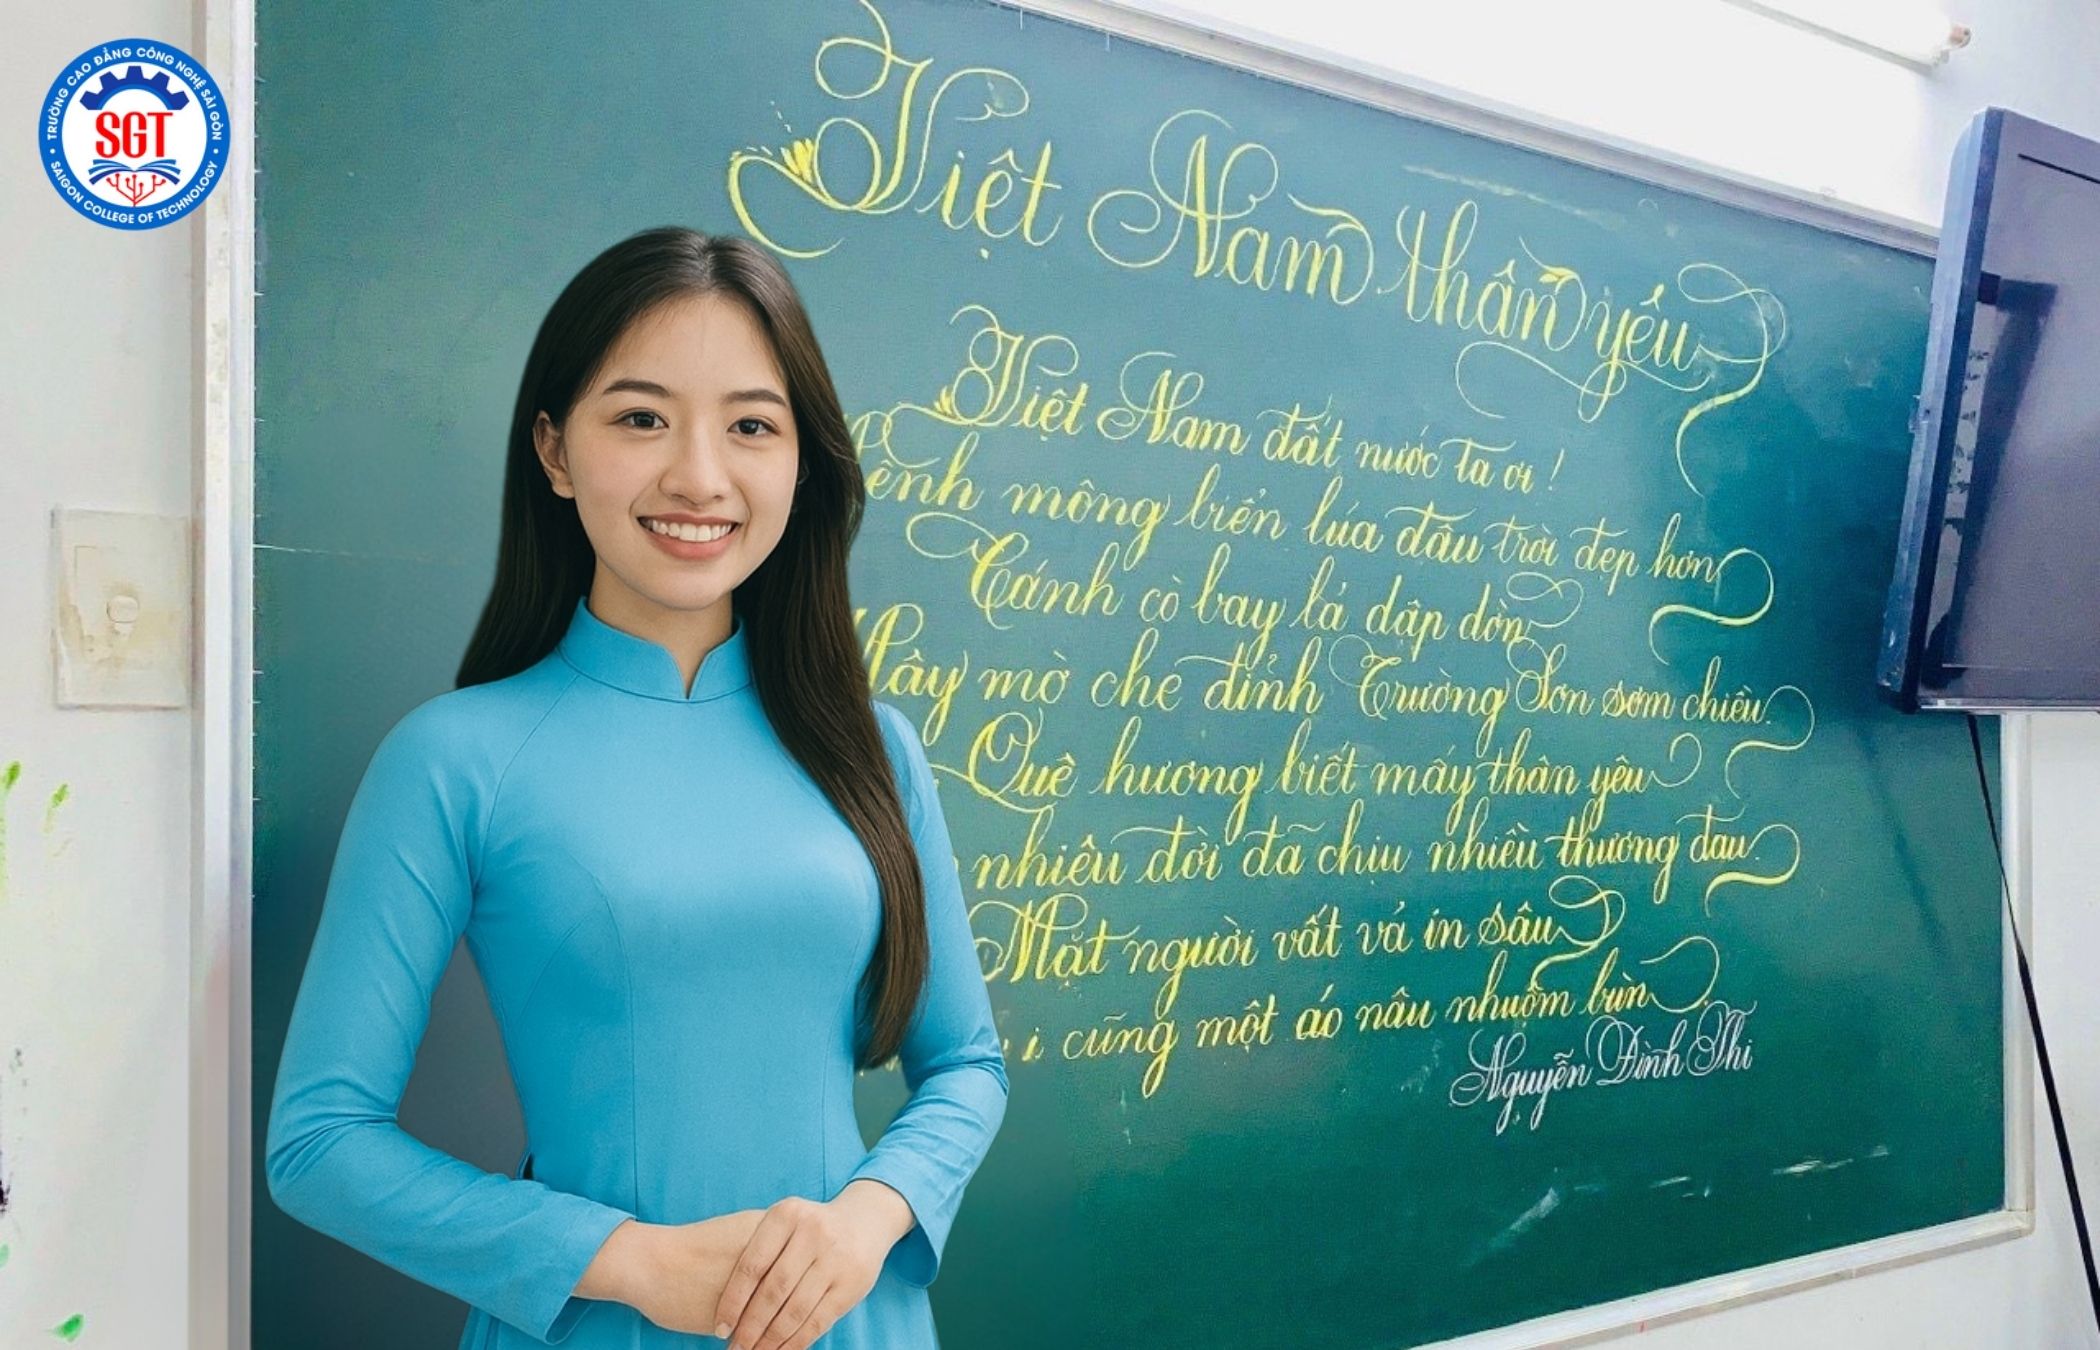 TRƯỜNG CAO ĐẲNG CÔNG NGHỆ SÀI GÒN
SGT
SAIGON COLLEGE OF TECHNOLOGY
Việt Nam thân yêu
Việt Nam đất nước ta ơi !
mông biển lúa đâu trời đẹp hơn
Cánh cò bay lả dập dờn
Mây mờ che đỉnh Trường Sơn sớm chiều.
Quê hương biết mấy thân yêu
nhiêu đời đã chịu nhiều thương đau.
Mặt người vất vả in sâu
cũng một áo nâu nhuộm bùn.
Nguyễn Đình Thi